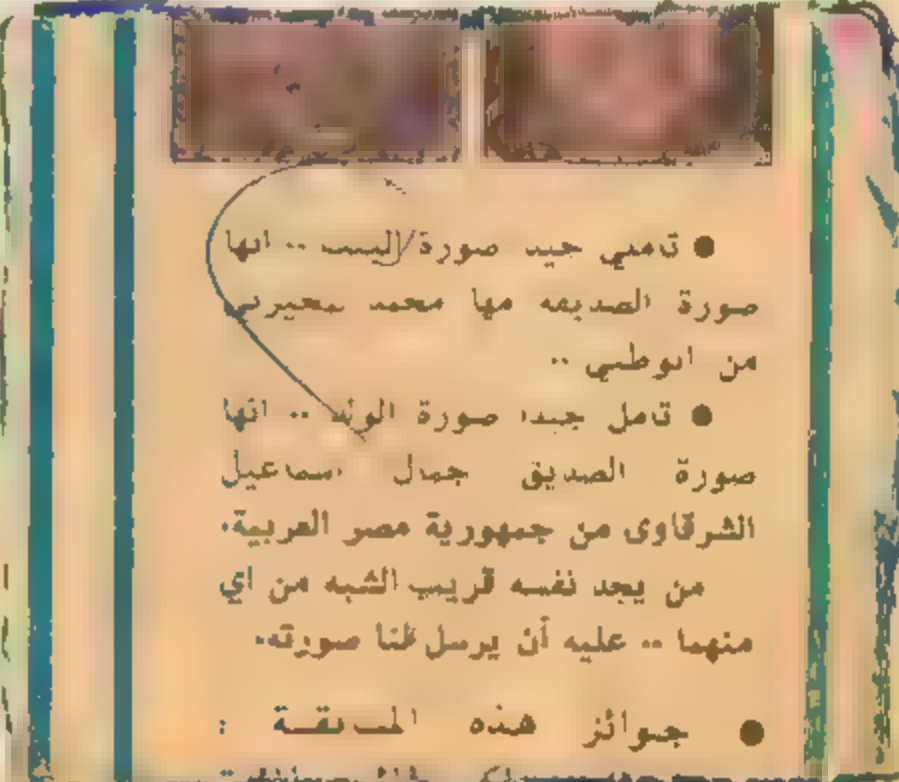 ● تأملي جيد صورة البنت .. انها
صورة الصديقه مها محمد
من ابوظبي ..
● تامل جيدا صورة الولد .. انها
صورة الصديق جمال اسماعيل
الشرقاوى من جمهورية مصر العربية.
من يجد نفسه قريب الشبه من اي
منهما .. عليه أن يرسل لنا صورته.
● جوائز هذه المسابقة :